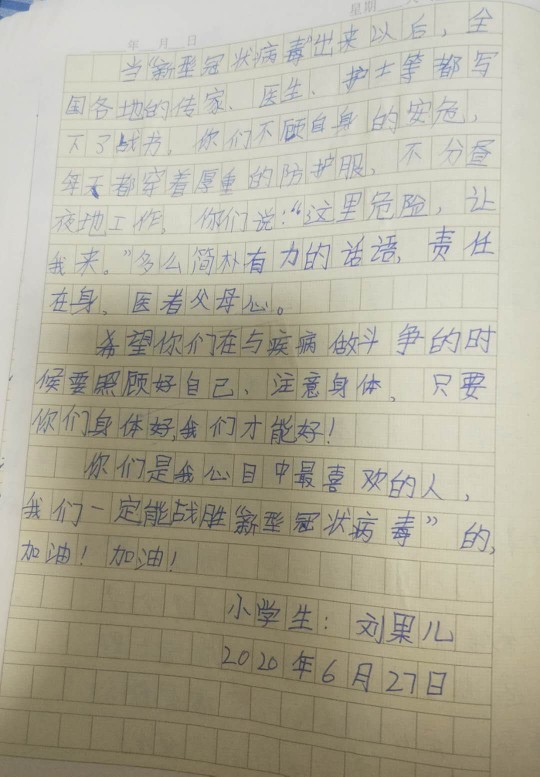 年 月 日 星期
当“新型冠状病毒”出来以后，全
国各地的传家、医生、护士等都写
下了战书，你们不顾自身的安危，
每天都穿着厚重的防护服，不分昼
夜地工作，你们说：“这里危险，让
我来。”多么简朴有力的话语，责任
在身，医者父母心。
希望你们在与疾病做斗争的时
候要照顾好自己、注意身体，只要
你们身体好，我们才能好！
你们是我心目中最喜欢的人，
我们一定能战胜“新型冠状病毒”的，
加油！加油！
小学生：刘果儿
2020年6月27日